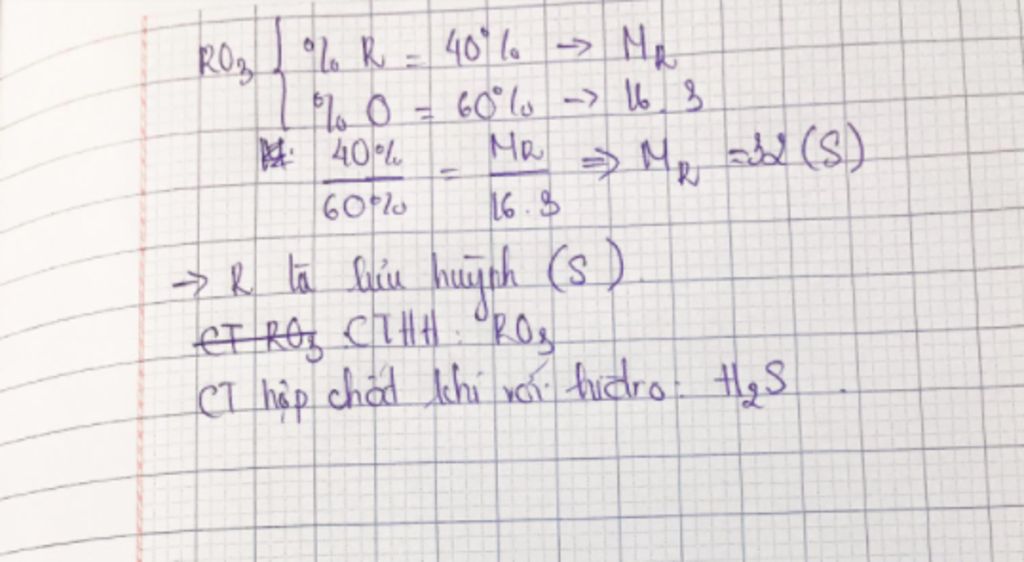 RO₃ { % R = 40% → M_R
% O = 60% → 16.3
40% / 60% = M_R / 16.3 ⇒ M_R = 32 (S)
→ R là lưu huỳnh (S)
CT RO₃ CTHH: RO₃
CT hợp chất khí với hiđro: H₂S.